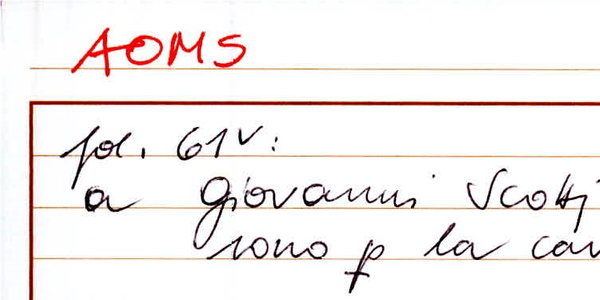 AOMS
fol. 61v:
a Giovanni Scotti
sono p la can